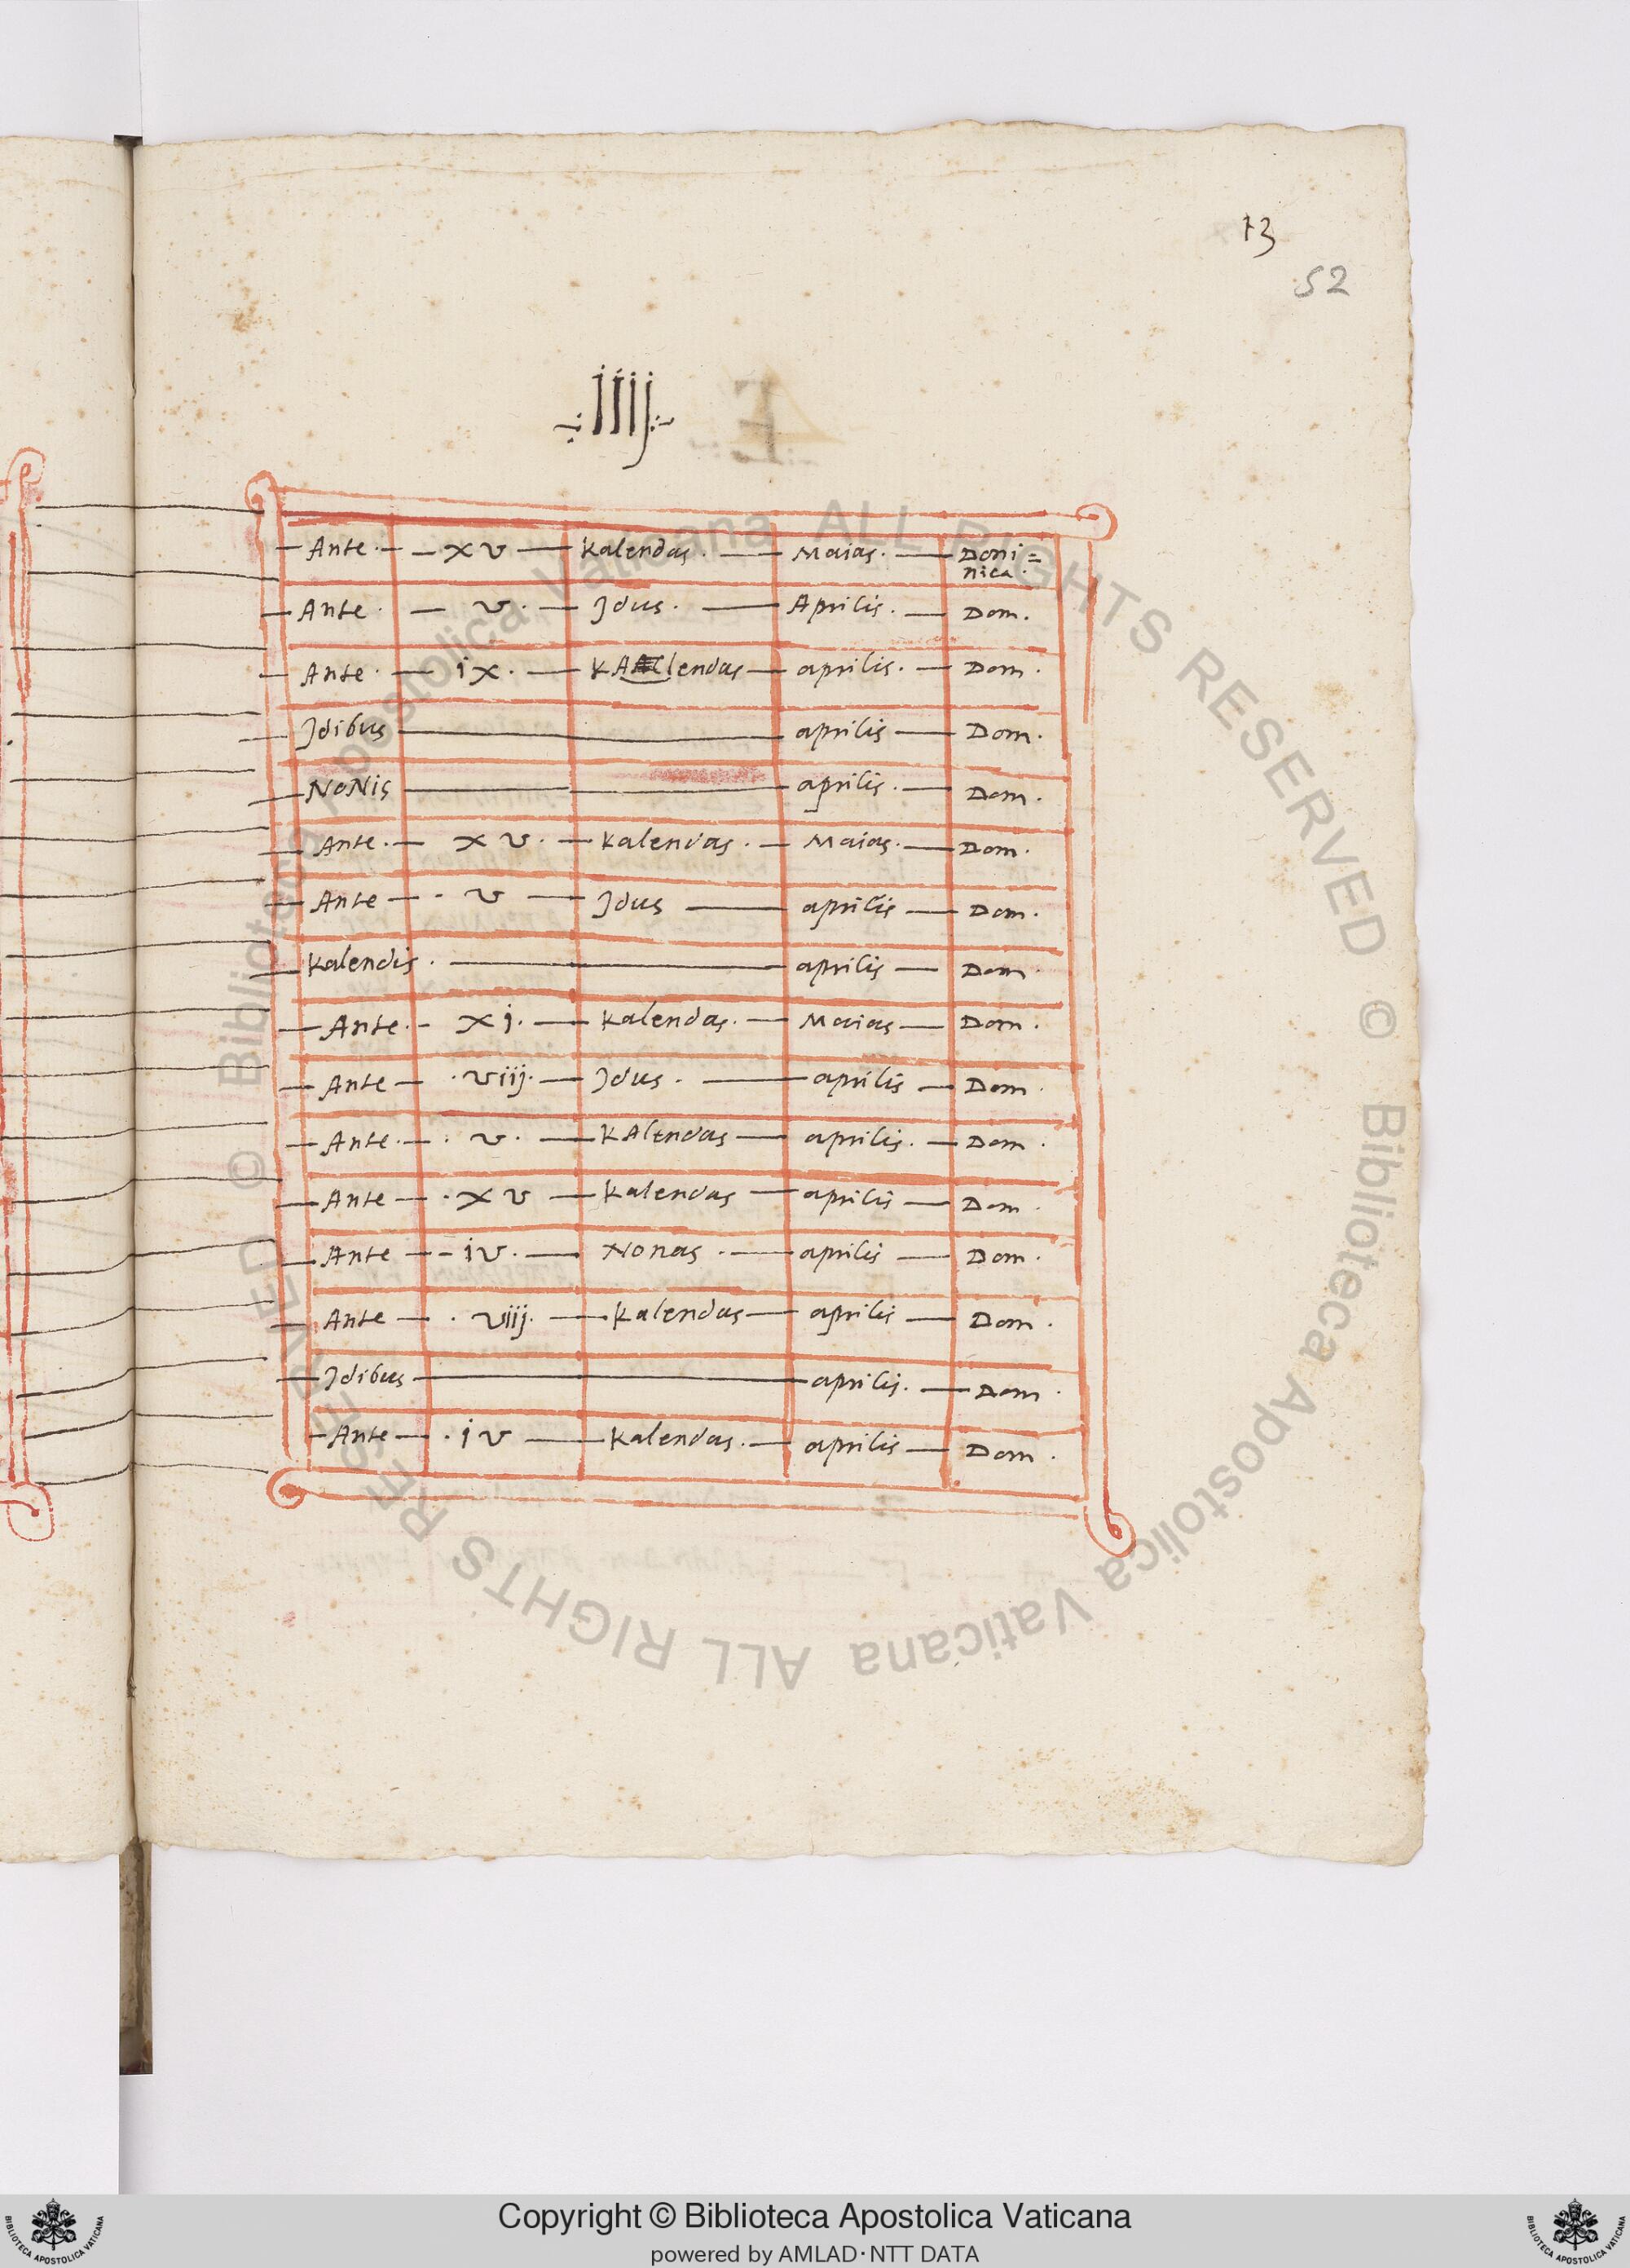 13
52
.iiij.
Ante. xv Kalendas. Maias. Doni=
nica.
Ante. v. Idus. Aprilis. Dom.
Ante. ix. KAlendas aprilis. Dom.
Idibus aprilis Dom.
NoNis aprilis. Dom.
Ante. xv. Kalendas. Maias. Dom.
Ante . v Idus aprilis Dom.
Kalendis. aprilis Dom.
Ante. xi. Kalendas. Maias Dom.
Ante .viij. Idus. aprilis Dom.
Ante. . v. KAlendas aprilis. Dom.
Ante . xv Kalendas aprilis Dom.
Ante iv. Nonas. aprilis Dom.
Ante . viij. Kalendas aprilis Dom.
Idibus aprilis. Dom.
Ante . iv Kalendas. aprilis Dom.
© Biblioteca Apostolica Vaticana ALL RIGHTS RESERVED
© Biblioteca Apostolica Vaticana ALL RIGHTS RESERVED
Copyright © Biblioteca Apostolica Vaticana
powered by AMLAD·NTT DATA
BIBLIOTECA APOSTOLICA VATICANA
BIBLIOTECA APOSTOLICA VATICANA